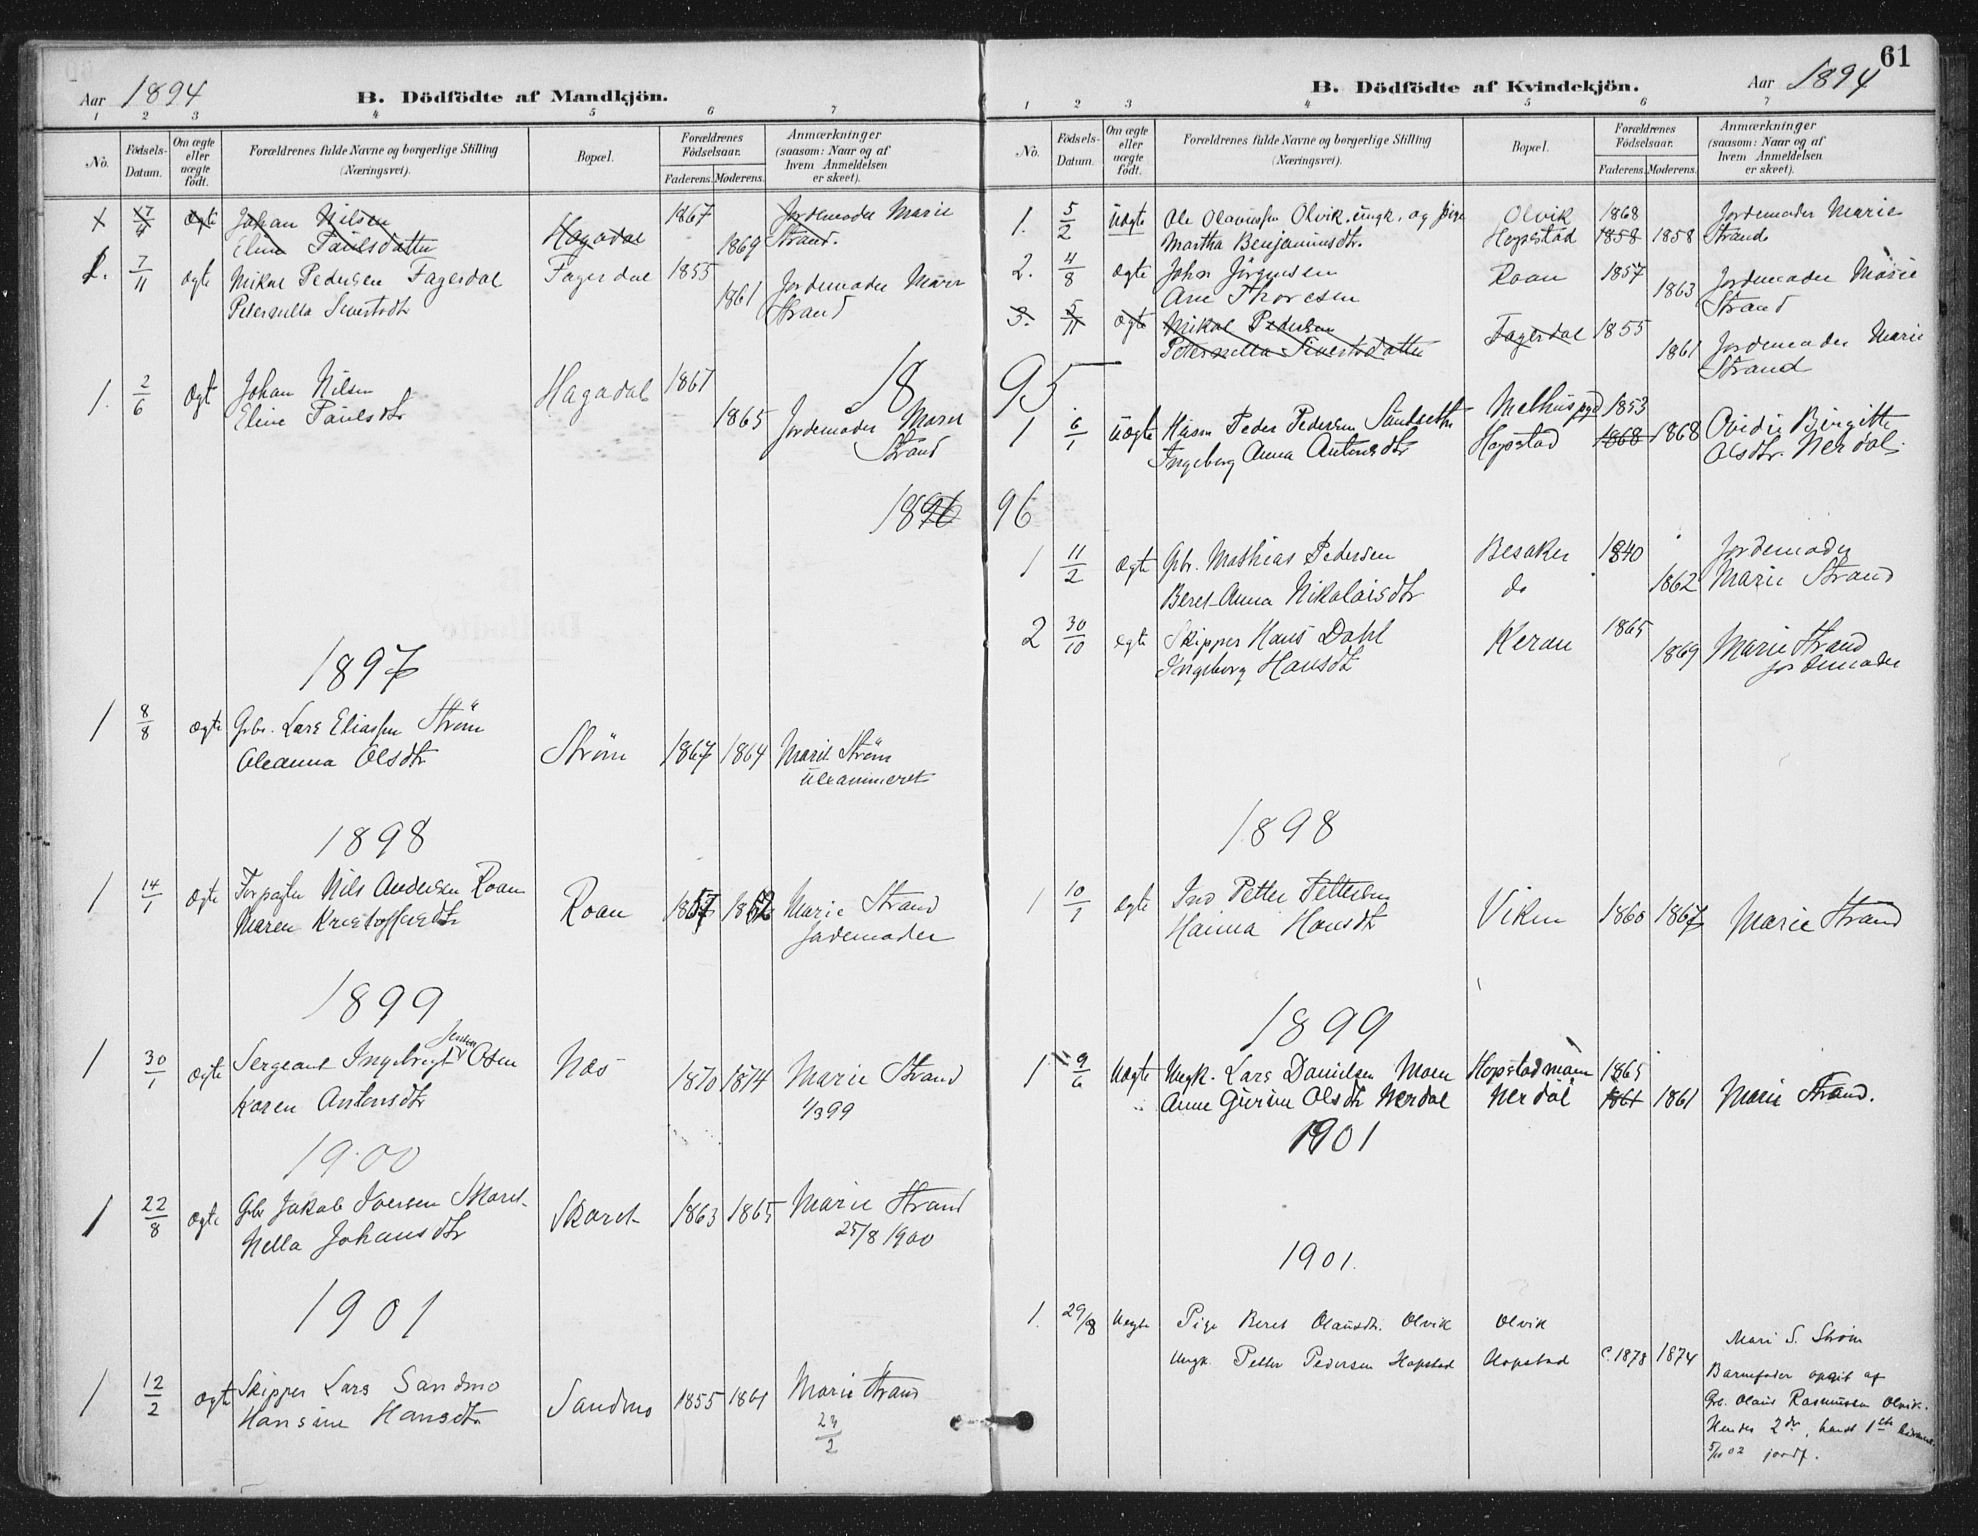 Aar 1894
B. Dödfödte af Mandkjön.
1 2 3 4 5 6 7
No.
Födsels-Datum.
Om ægte eller uægte födt.
Forældrenes fulde Navne og borgerlige Stilling
(Næringsvei).
Bopæl.
Forældrenes Födselsaar.
Faderens. Moderens.
Anmærkninger
(saasom: Naar og af
hvem Anmeldelsen
er skeet).
1 17/4 ægte Johan Nilsen Hagadal 1867 Jordemoder Marie
Eline Paulsdatter 1869 Strand.
1. 7/11 ægte Mikal Pedersen Fagerdal Fagerdal 1855 Jordemoder Marie
Petersnella Sivertsdtr 1861 Strand
18
1. 2/6 ægt Johan Nilsen Hagadal 1867
Eline Paulsdtr 1865 Jordemoder Marie
Strand
1896
1897
1 8/8 ægte Gbr. Lars Eliassen Strøm
Oleanna Olsdtr Strøm 1867 1864 Marit Strøm
uexamineret
1898
1 14/1 ægte Forpagter Nils Andersen Roan
Maren Kristoffersdtr Roan 1857 1852 Marie Strand
Jordemoder
1899
1 30/1 ægte Sergeant Ingebrigt Jensen Osen Næs 1870 1874 Marie Strand
Karen Antonsdtr 1/3 99
1900
1 22/8 ægte Gbr Jakob Iversen Skaret Skaret 1863 1865 Marie Strand
Nella Johansdtr 25/8 1900
1901
1 12/2 ægt Skipper Lars Sandmo Sandmo 1855 1861 Marie Strand
Hansine Hansdtr 24/2
61
B. Dödfödte af Kvindekjön.
Aar 1894
1 2 3 4 5 6 7
No.
Födsels-Datum.
Om ægte eller uægte födt.
Forældrenes fulde Navne og borgerlige Stilling
(Næringsvei).
Bopæl.
Forældrenes Födselsaar.
Faderens. Moderens.
Anmærkninger
(saasom: Naar og af
hvem Anmeldelsen
er skeet).
1. 5/2 uægte Ole Olaussen Olvik, ungk. og pige Olvik 1868 Jordemoder Marie
Martha Benjaminsdtr. Hopstad 1858 1858 Strand
2. 4/8 ægte John Jörgensen Roan 1857 Jordemoder Marie
Ane Thoresen 1863 Strand
3. 5/11 ægte Mikal Pedersen Fagerdal 1855 Jordemoder Marie
Petersnella Sivertsdatter 1861 Strand
95
1 6/1 uægte Husm Peder Pedersen Melhus pgd 1853 Ovidie Birgitte
Ingeborg Anna Antonsdtr Hopstad 1868 1868 Olsdtr. Nerdal.
96
1 11/2 ægte Gbr. Mathias Pedersen Besaker 1840 Jordemoder
Beret Anna Nikolaisdtr do 1862 Marie Strand
2 30/10 egte Skipper Hans Dahl Keran 1865 Marie Strand
Ingeborg Hansdtr 1869 jordemoder
1898
1 10/1 ægte Ind Petter Pettersen Viken 1860 1867 Marie Strand
Hanna Hansdtr
1899
1 9/6 Uægte Ungk. Lars Danielsen Moen Hopstadmoen 1865
Anne Gurine Olsdtr Nerdal Nerdal 1861 1861 Marie Strand.
1901
1901.
1. 29/8 Uegte Pige Beret Olausdtr. Olvik Olvik
Ungk. Petter Pedersen Hopstad Hopstad c. 1878 1874 Mari S. Strøm
Barnefader opgit af
Gbr. Olaus Rasmussen Olvik.
Hendes 2det, hands 1ste
5/10 02 jordf.